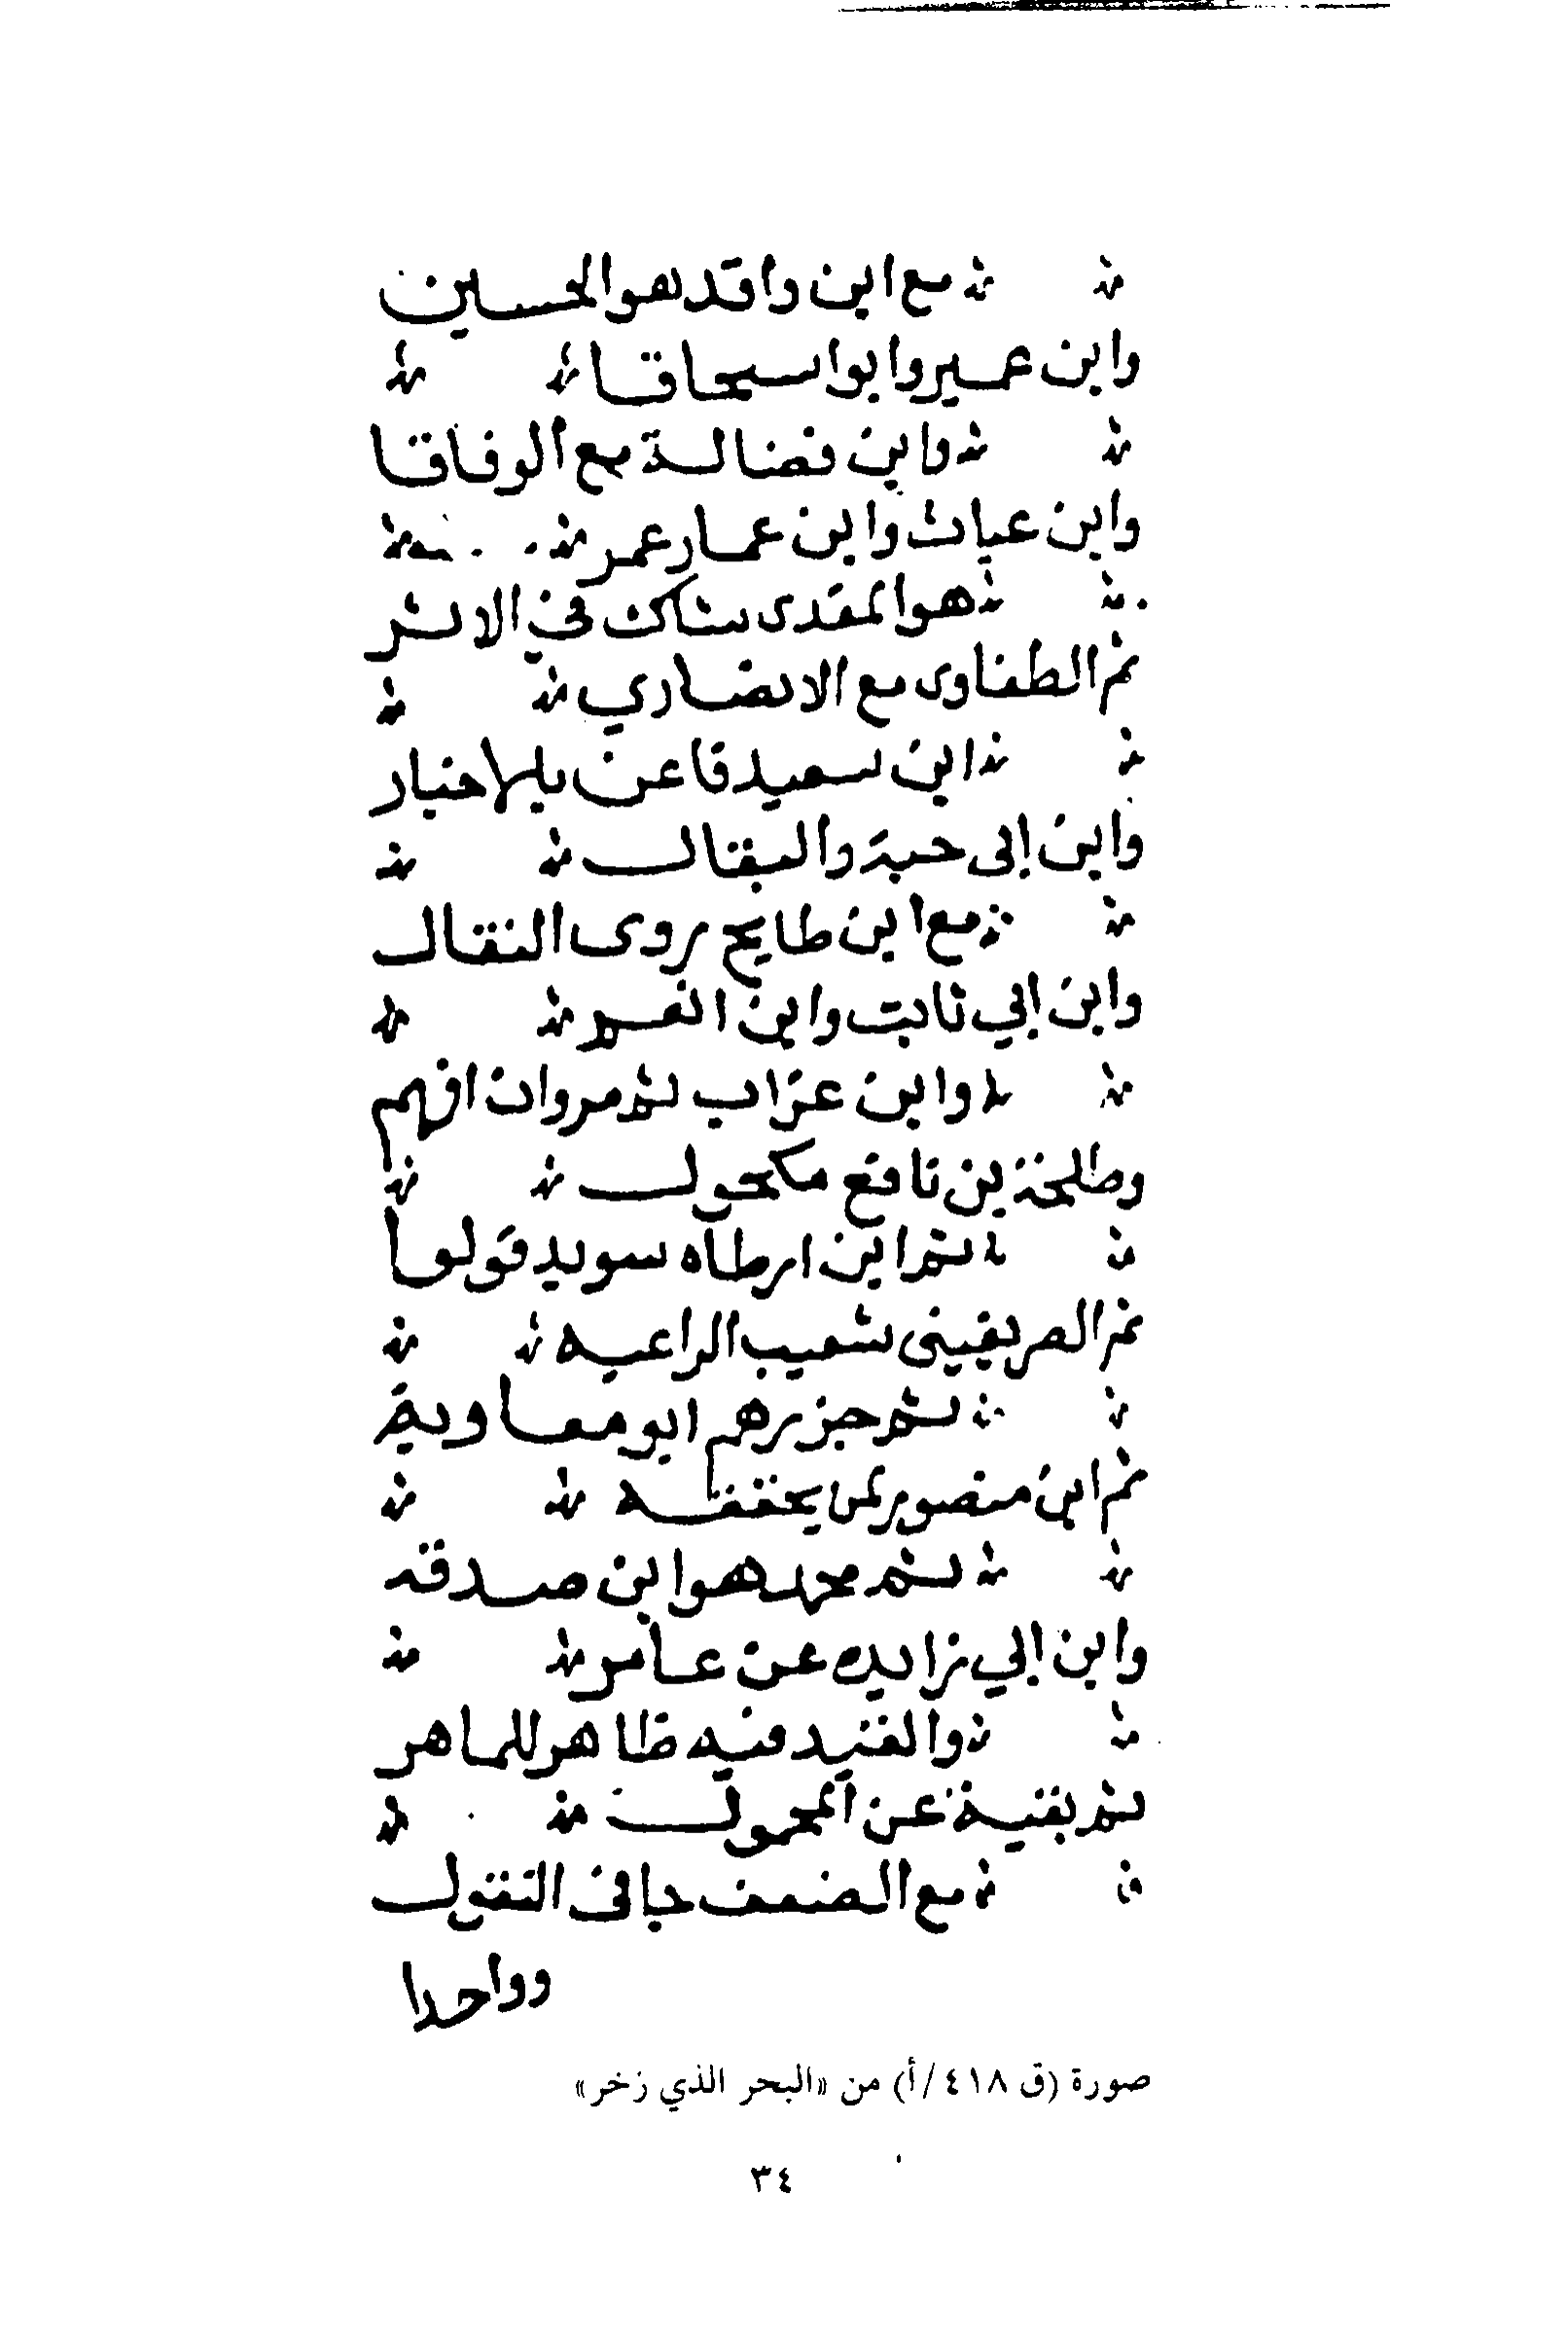 مع ابن واقد هو الحسين
وابن عمير وابوا سحاقا
وابن فضالة مع الوفاقا
وابن عياث وابن عمار عمر
هو المقدى شاك في الاشر
ثم الطفاوى مع الانصاري
ابن سعيد قا عن
وابن ابى حية والبقال
مع ابن روى النقال
وابن ابي ثابت وابن
وابن عزاب ثم مروان افهم
وطلحة بن نافع مكحول
ثم ابن ارطاه سويد قولوا
ثم الصريفينى شعيب الراعيه
ثم ابو معاوية
ثم ابن منصور لمن يحققه
ثم محمد هو ابن صدقه
وابن ابي زايده عن عامر
والقيد فيه ظاهر للماهر
ثم بقية عن
مع الضعف جا فى النقول
وواحدا
صورة (ق ٤١٨/أ) من «البحر الذي زخر»
٣٤